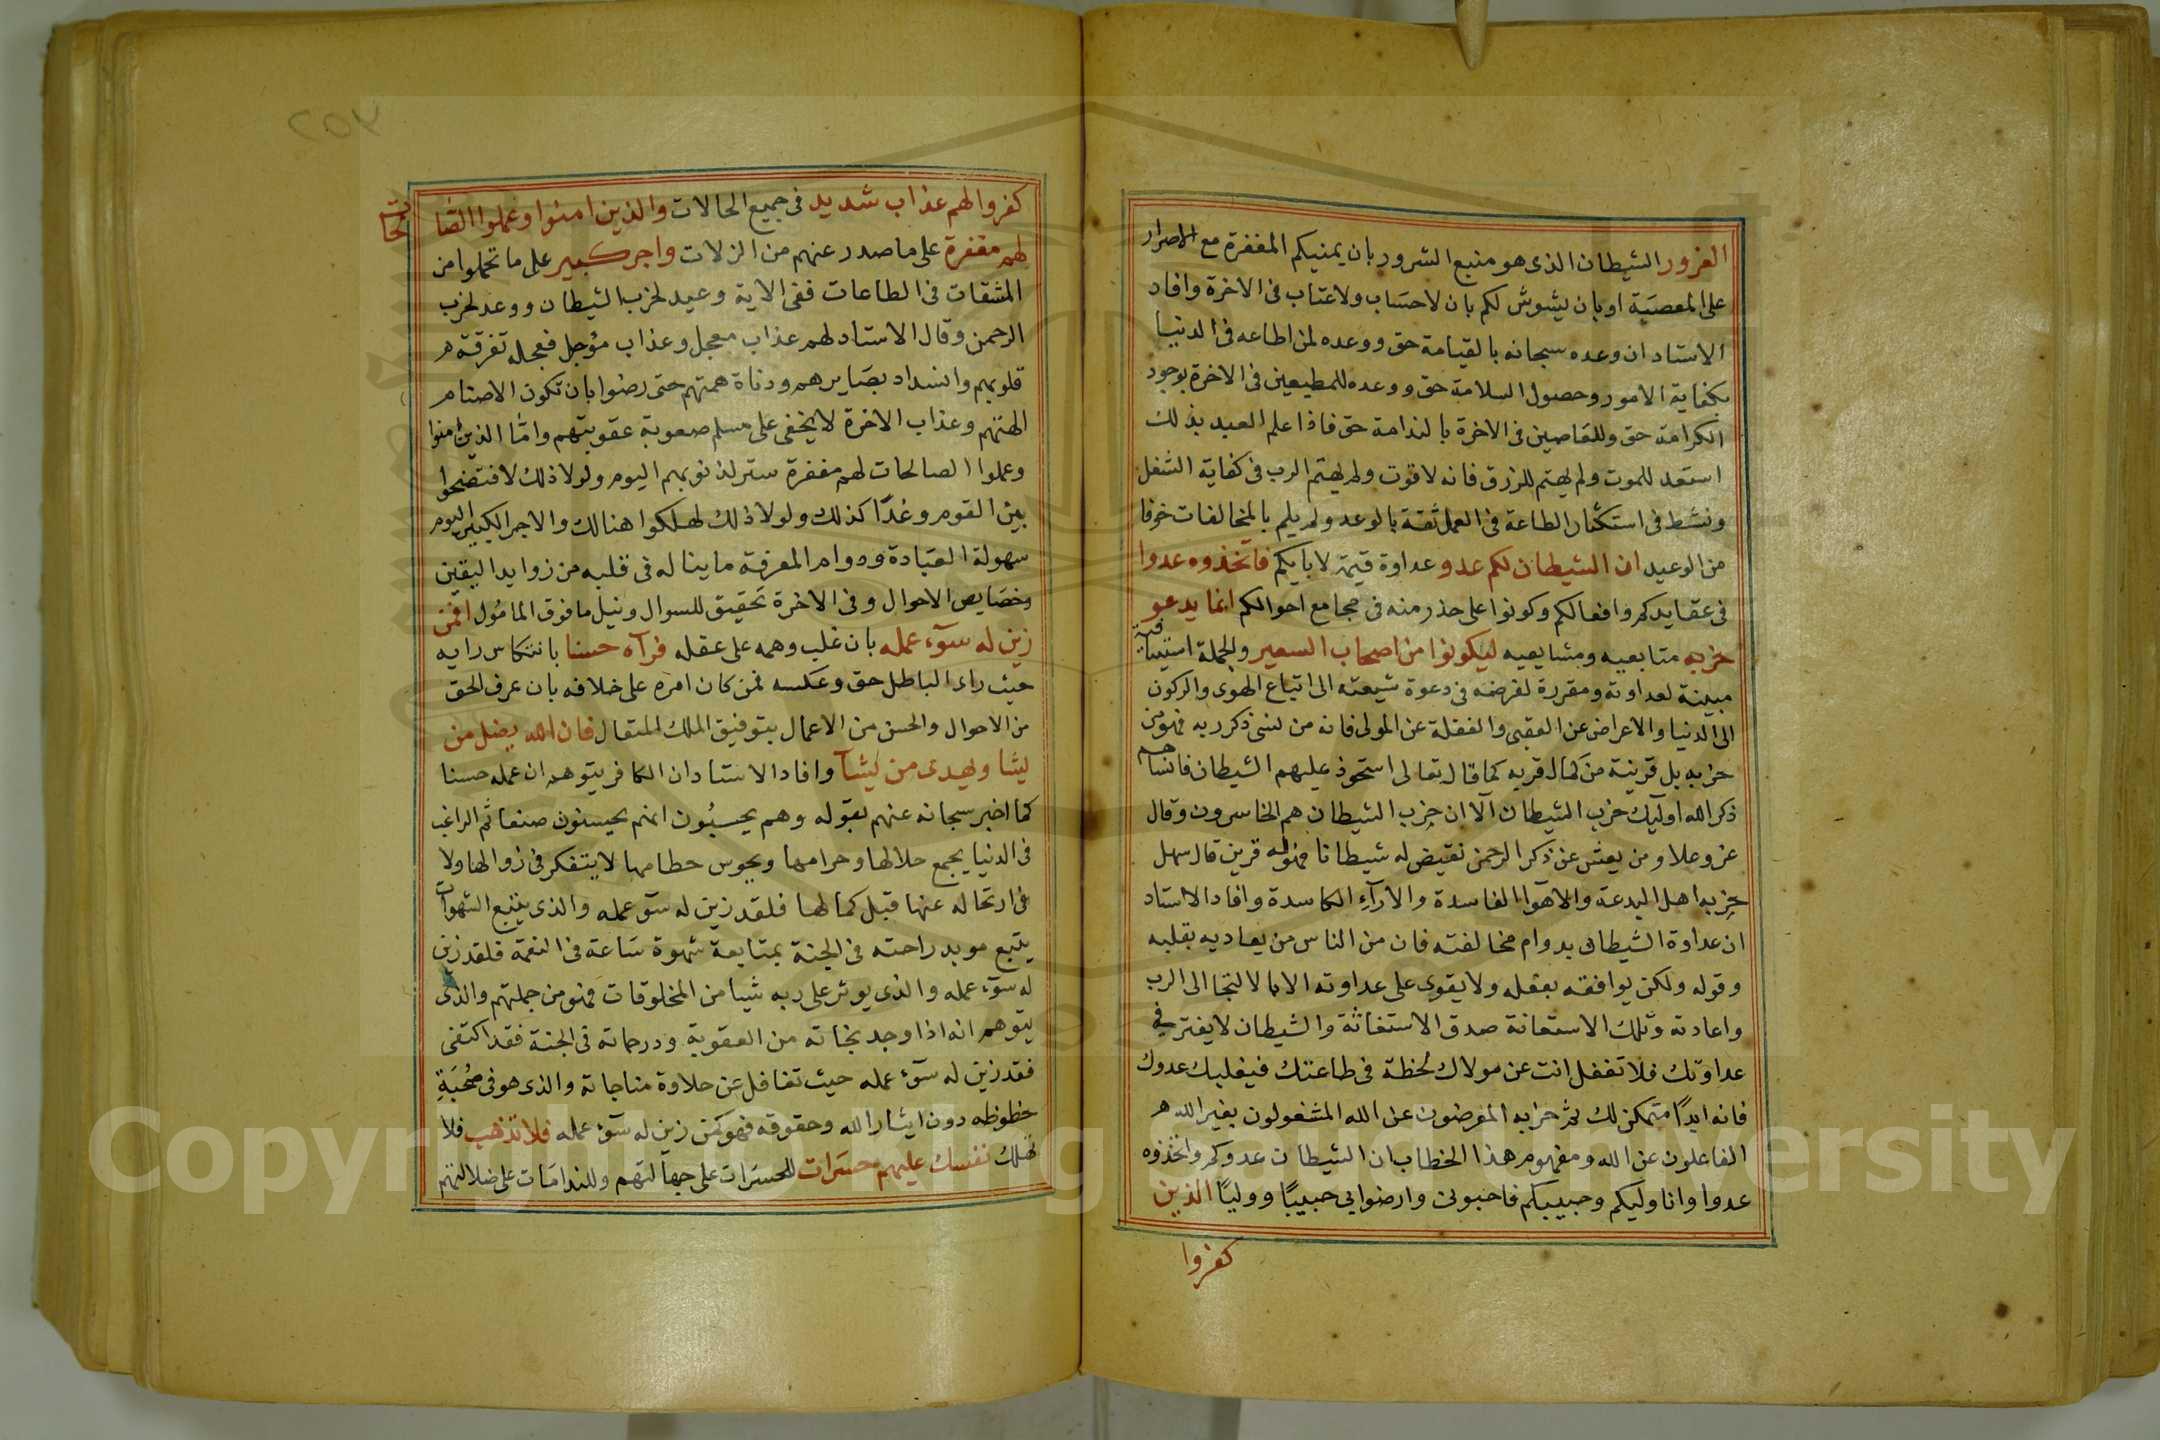 الغرور الشيطان الذى هو منبع الشرور بان يمنيكم المغفرة مع الاصرار
على المعصية او بان يشوش لكم بان لا حساب ولا عتاب فى الاخرة وافاد
الاستاد ان وعده سبحانه بالقيامة حق ووعده لمن اطاعه فى الدنيا
بكفاية الامور وحصول السلامة حق ووعده للمطيعين فى الاخرة بوجود
الكرامة حق وللعاصين فى الاخرة بالندامة حق فاذا علم العبد بذلك
استعد للموت ولم يهتم للرزق فانه لا قوت ولم يهتم الرب فى كفاية الشغل
ونشط فى استكثار الطاعة فى العمل ثقة بالوعد ولم يلم بالمخالفات خوفا
من الوعيد ان الشيطان لكم عدو عداوة قيمة لابايكم فاتخذوه عدوا
فى عقايدكم وافعالكم وكونوا على حذر منه فى مجامع احوالكم انما يدعو
حزبه متابعيه ومشايعيه ليكونوا من اصحاب السعير والجملة استينافية
مبينة لعداوته ومقررة لغرضه فى دعوة شيعته الى اتباع الهوى والركون
الى الدنيا والاعراض عن العقبى والغفلة عن المولى فانه من لنسى ذكر ربه فهو من
حزبه بل قرينة من كمال قربه كما قال تعالى استحوذ عليهم الشيطان فانساهم
ذكر الله اوليك حزب الشيطان الا ان حزب الشيطان هم الخاسرون وقال
عز وعلا ومن يعش عن ذكر الرحمن نقيض له شيطانا فهو له قرين قال سهل
حزبه اهل البدعة والاهوا الفاسدة والارآء الكاسدة وافاد الاستاد
ان عداوة الشيطان بدوام مخالفته فان من الناس من يعاديه بقلبه
وقوله ولكن يوافقه بفعله ولا يقوى على عداوته الا بالالتجا الى الرب
واعادته وتلك الاستعانة صدق الاستغاثة والشيطان لا يفتر في
عداوتك فلا تغفل انت عن مولاك لحظة فى طاعتك فيغلبك عدوك
فانه ابدًا متمكن لك ثم حزبه المعرضون عن الله المشغولون بغير الله
الغافلون عن الله ومفهوم هذا الخطاب ان الشيطان عدوكم واتخذوه
عدوا وانا وليكم وحبيبكم فاحبونى وارضوابى حبيبًا ووليًا الذين
كفروا
كفروا لهم عذاب شديد فى جميع الحالات والذين امنوا وعملوا الصالحات
لهم مغفرة على ما صدر عنهم من الزلات واجر كبير على ما تحملوا من
المشقات فى الطاعات ففى الاية وعيد لحزب الشيطان ووعد لحزب
الرحمن وقال الاستاد لهم عذاب معجل وعذاب مؤجل فمعجله تفرقة
قلوبهم وانسداد بصايرهم ودناة همتهم حتى رضوا بان تكون الاصنام
الهتهم وعذاب الاخرة لا يخفى على مسلم صعوبة عقوبتهم واما الذين امنوا
وعملوا الصالحات لهم مغفرة ستر لذنوبهم اليوم ولولا ذلك لافتضحوا
بين القوم وغدًا كذلك ولولا ذلك لهلكوا هنالك والاجر الكبير اليوم
سهولة العبادة ودوام المعرفة ما يناله فى قلبه من زوايد اليقين
وخصايص الاحوال وفى الاخرة تحقيق للسوال ونيل ما فوق المامول افمن
زين له سوء عمله بان غلب وهمه على عقله فرآه حسنا بانتكاس رايه
حيث راى الباطل حق وعكسه فمن كان امره على خلافه بان عرف الحق
من الاحوال والحسن من الاعمال بتوفيق الملك المتعال فان الله يضل من
يشا ويهدى من يشآ وافاد الاستاد ان الكافر يتوهم ان عمله حسنا
كما اخبر سبحانه عنهم بقوله وهم يحسبون انهم يحسنون صنعا ثم الراغب
فى الدنيا يجمع حلالها وحرامها ويحوس حطامها لا يتفكر فى زوالها ولا
فى ارتحاله عنها قبل كمالها فلقد زين له سوء عمله والذى يتبع الشهوات
يتبع موبد راحته فى الجنة بمتابعة شهوة ساعة فى النعمة فلقد زين
له سوء عمله والذى يوثر على ربه شيا من المخلوقات فهو من جملتهم والذى
يتوهم انه اذا وجد نجاته من العقوبة ودرجاته فى الجنة فقد اكتفى
فقد زين له سوء عمله حيث تغافل عن حلاوة مناجاته والذى هو فى صحبة
حظوظه دون ايثار الله وحقوقه فهو كمن زين له سوء عمله فلا تذهب فلا
تهلك نفسك عليهم حسرات للحسرات على جهالتهم وللندامات على ضلالتهم